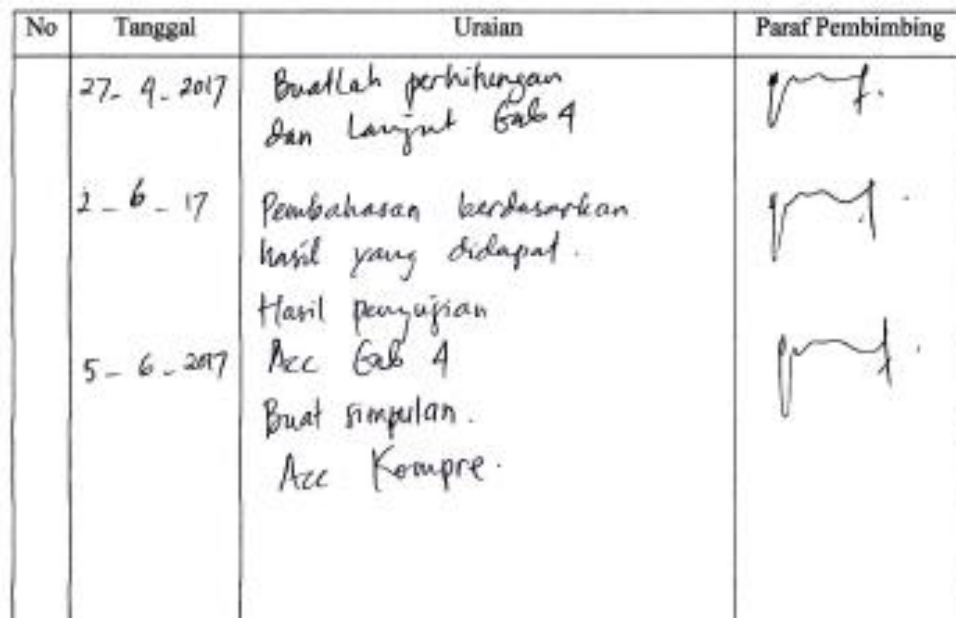 No Tanggal Uraian Paraf Pembimbing
27-4-2017 Buatlah perhitungan
dan Lanjut Bab 4
2-6-17 Pembahasan berdasarkan
hasil yang didapat.
Hasil pengujian
5-6-2017 Acc Bab 4
Buat simpulan.
Acc Kompre.